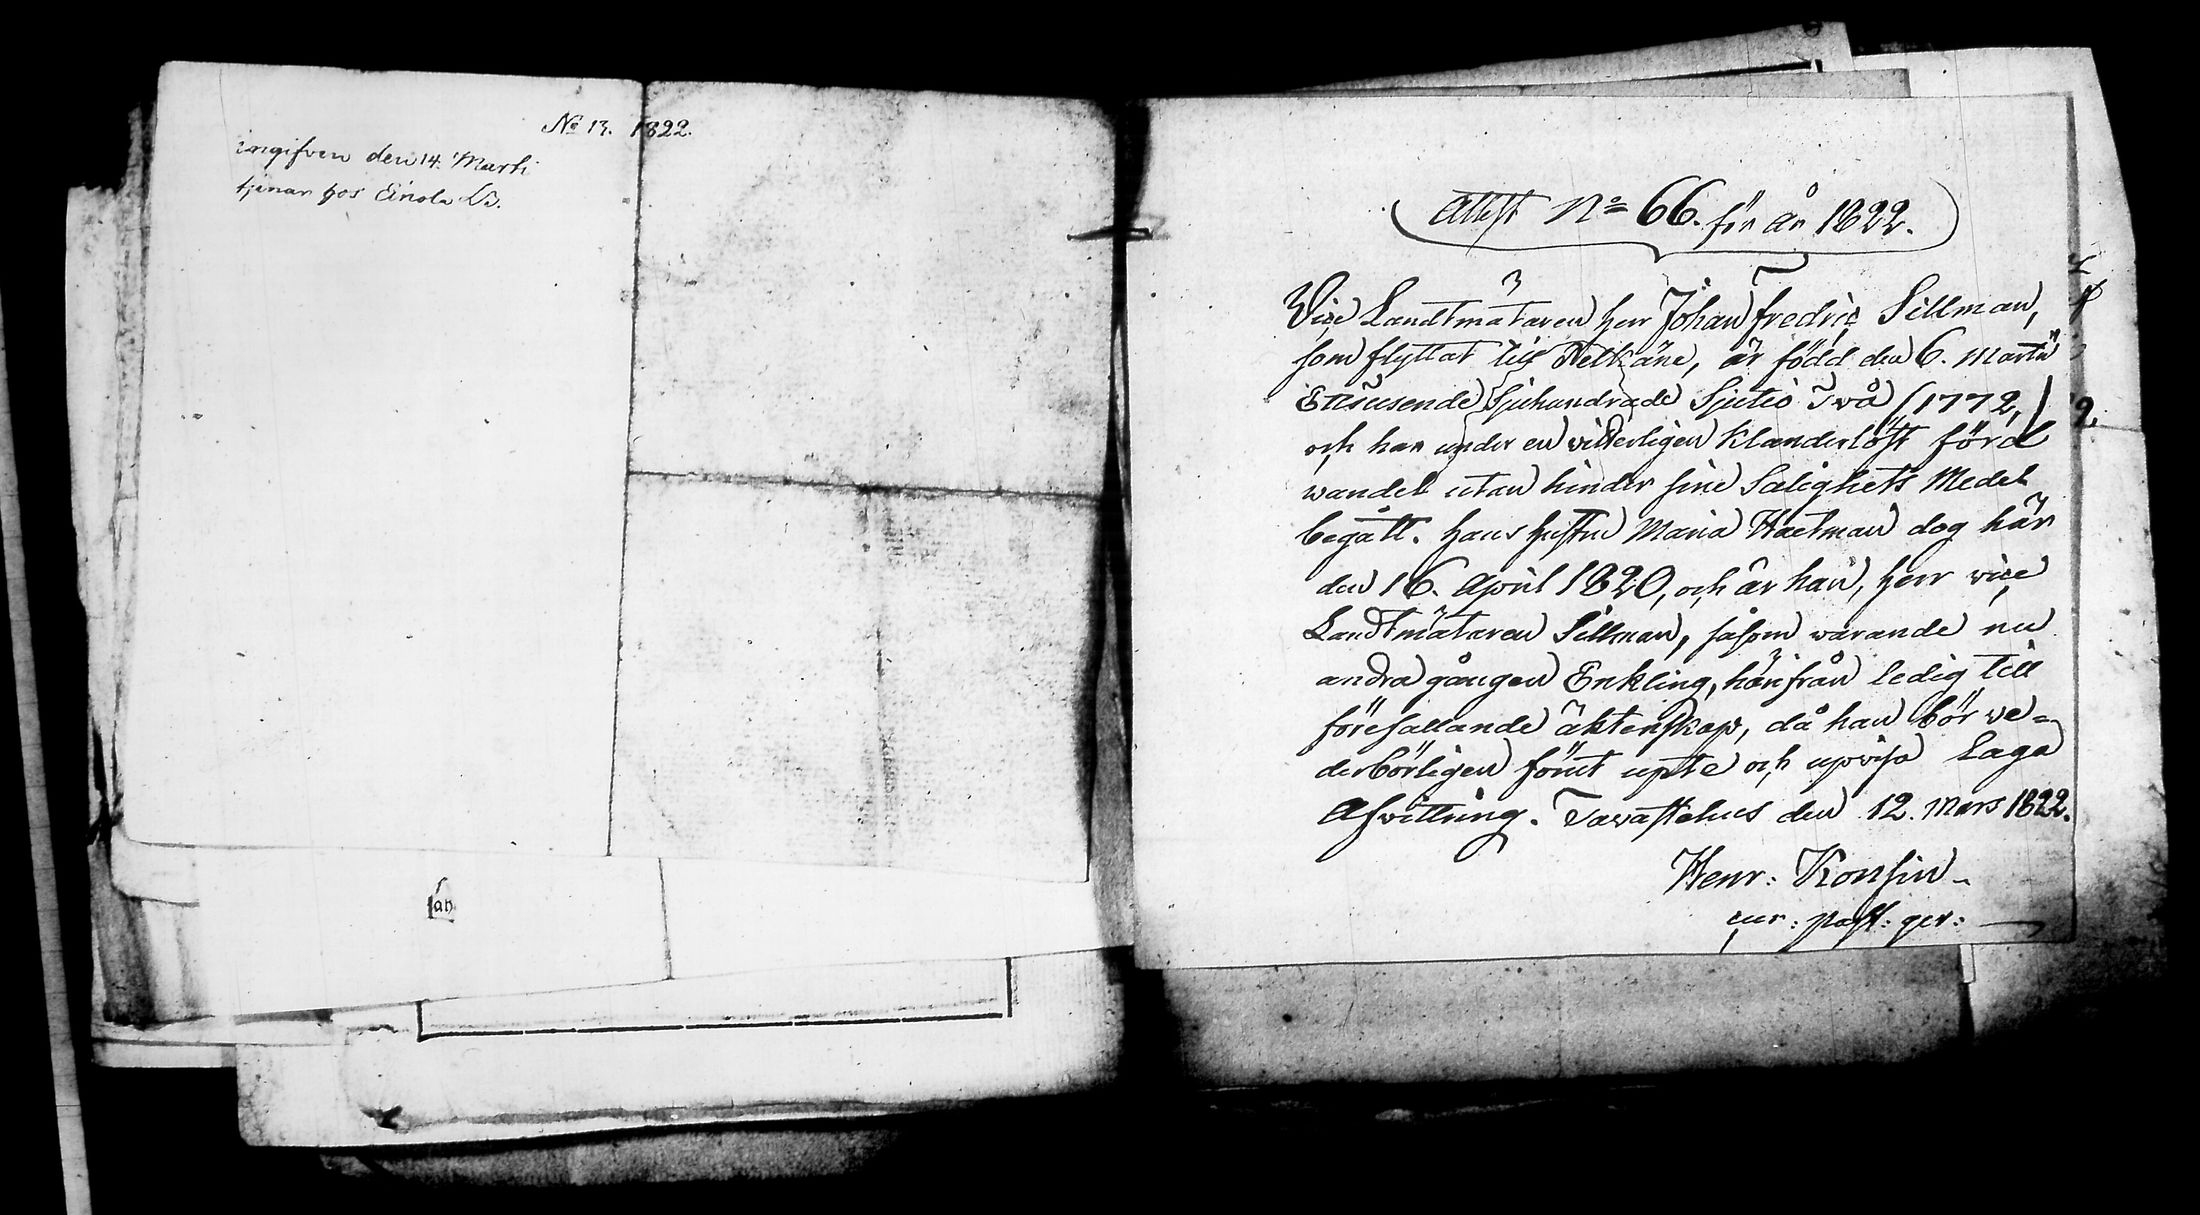 No 13. 1822.
ingifven den 14. Marti
tjenar hos Einola
Attest No 66. för år 1822.
Vice Landtmätaren herr Johan Fredric Sillman,
som flyttat till Pelkäne, är född den 6. Martii
Ettusende Sjuhundrade Sjutio Två (1772,)
och har under en vitterligen klanderlöst förd
wandel utan hinder sine Salighets Medel
begått. hans hustru Maria Hartman dog här
den 16. April 1820, och är han, herr vice
Landtmätaren Sillman, såsom warande nu
andra gången Enkling, härifrån ledig till
förefallande äktenskap, då han bör we=
derbörligen förut upte och upvisa Laga
Afwittring. Tavastehus den 12. Mars 1822.
Henr: Konsin
cur: past: ger: